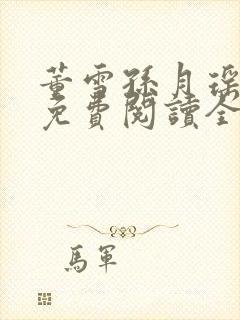 董雪孫月瑤
免費閱讀全
馬軍